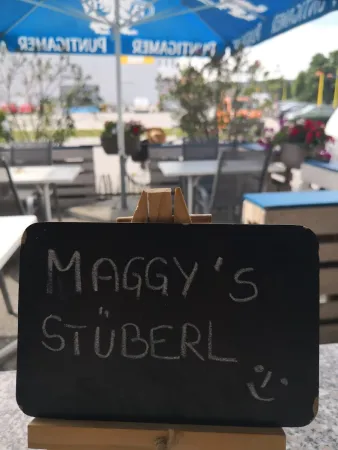 PUNTIGAMER PUNTIGAMER PUNTIGAMER
MAGGY'S
STÜBERL